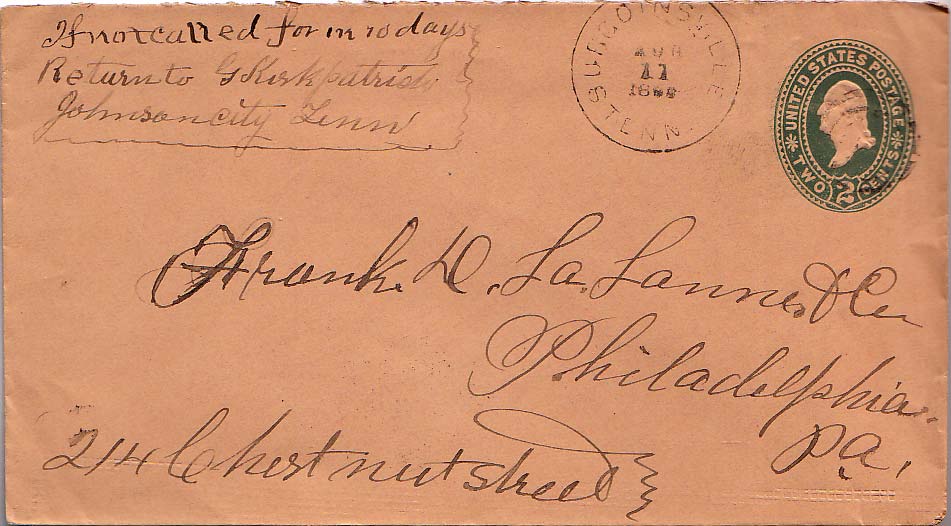 If not called for in 10 days
Return to G Kirkpatrick
Johnson city Tenn
SURGOINSVILLE
11
TENN.
UNITED STATES POSTAGE
TWO 2 CENTS
Frank. D. La. Lanne. & Co
Philadelphia.
Pa.
214 Chestnut street